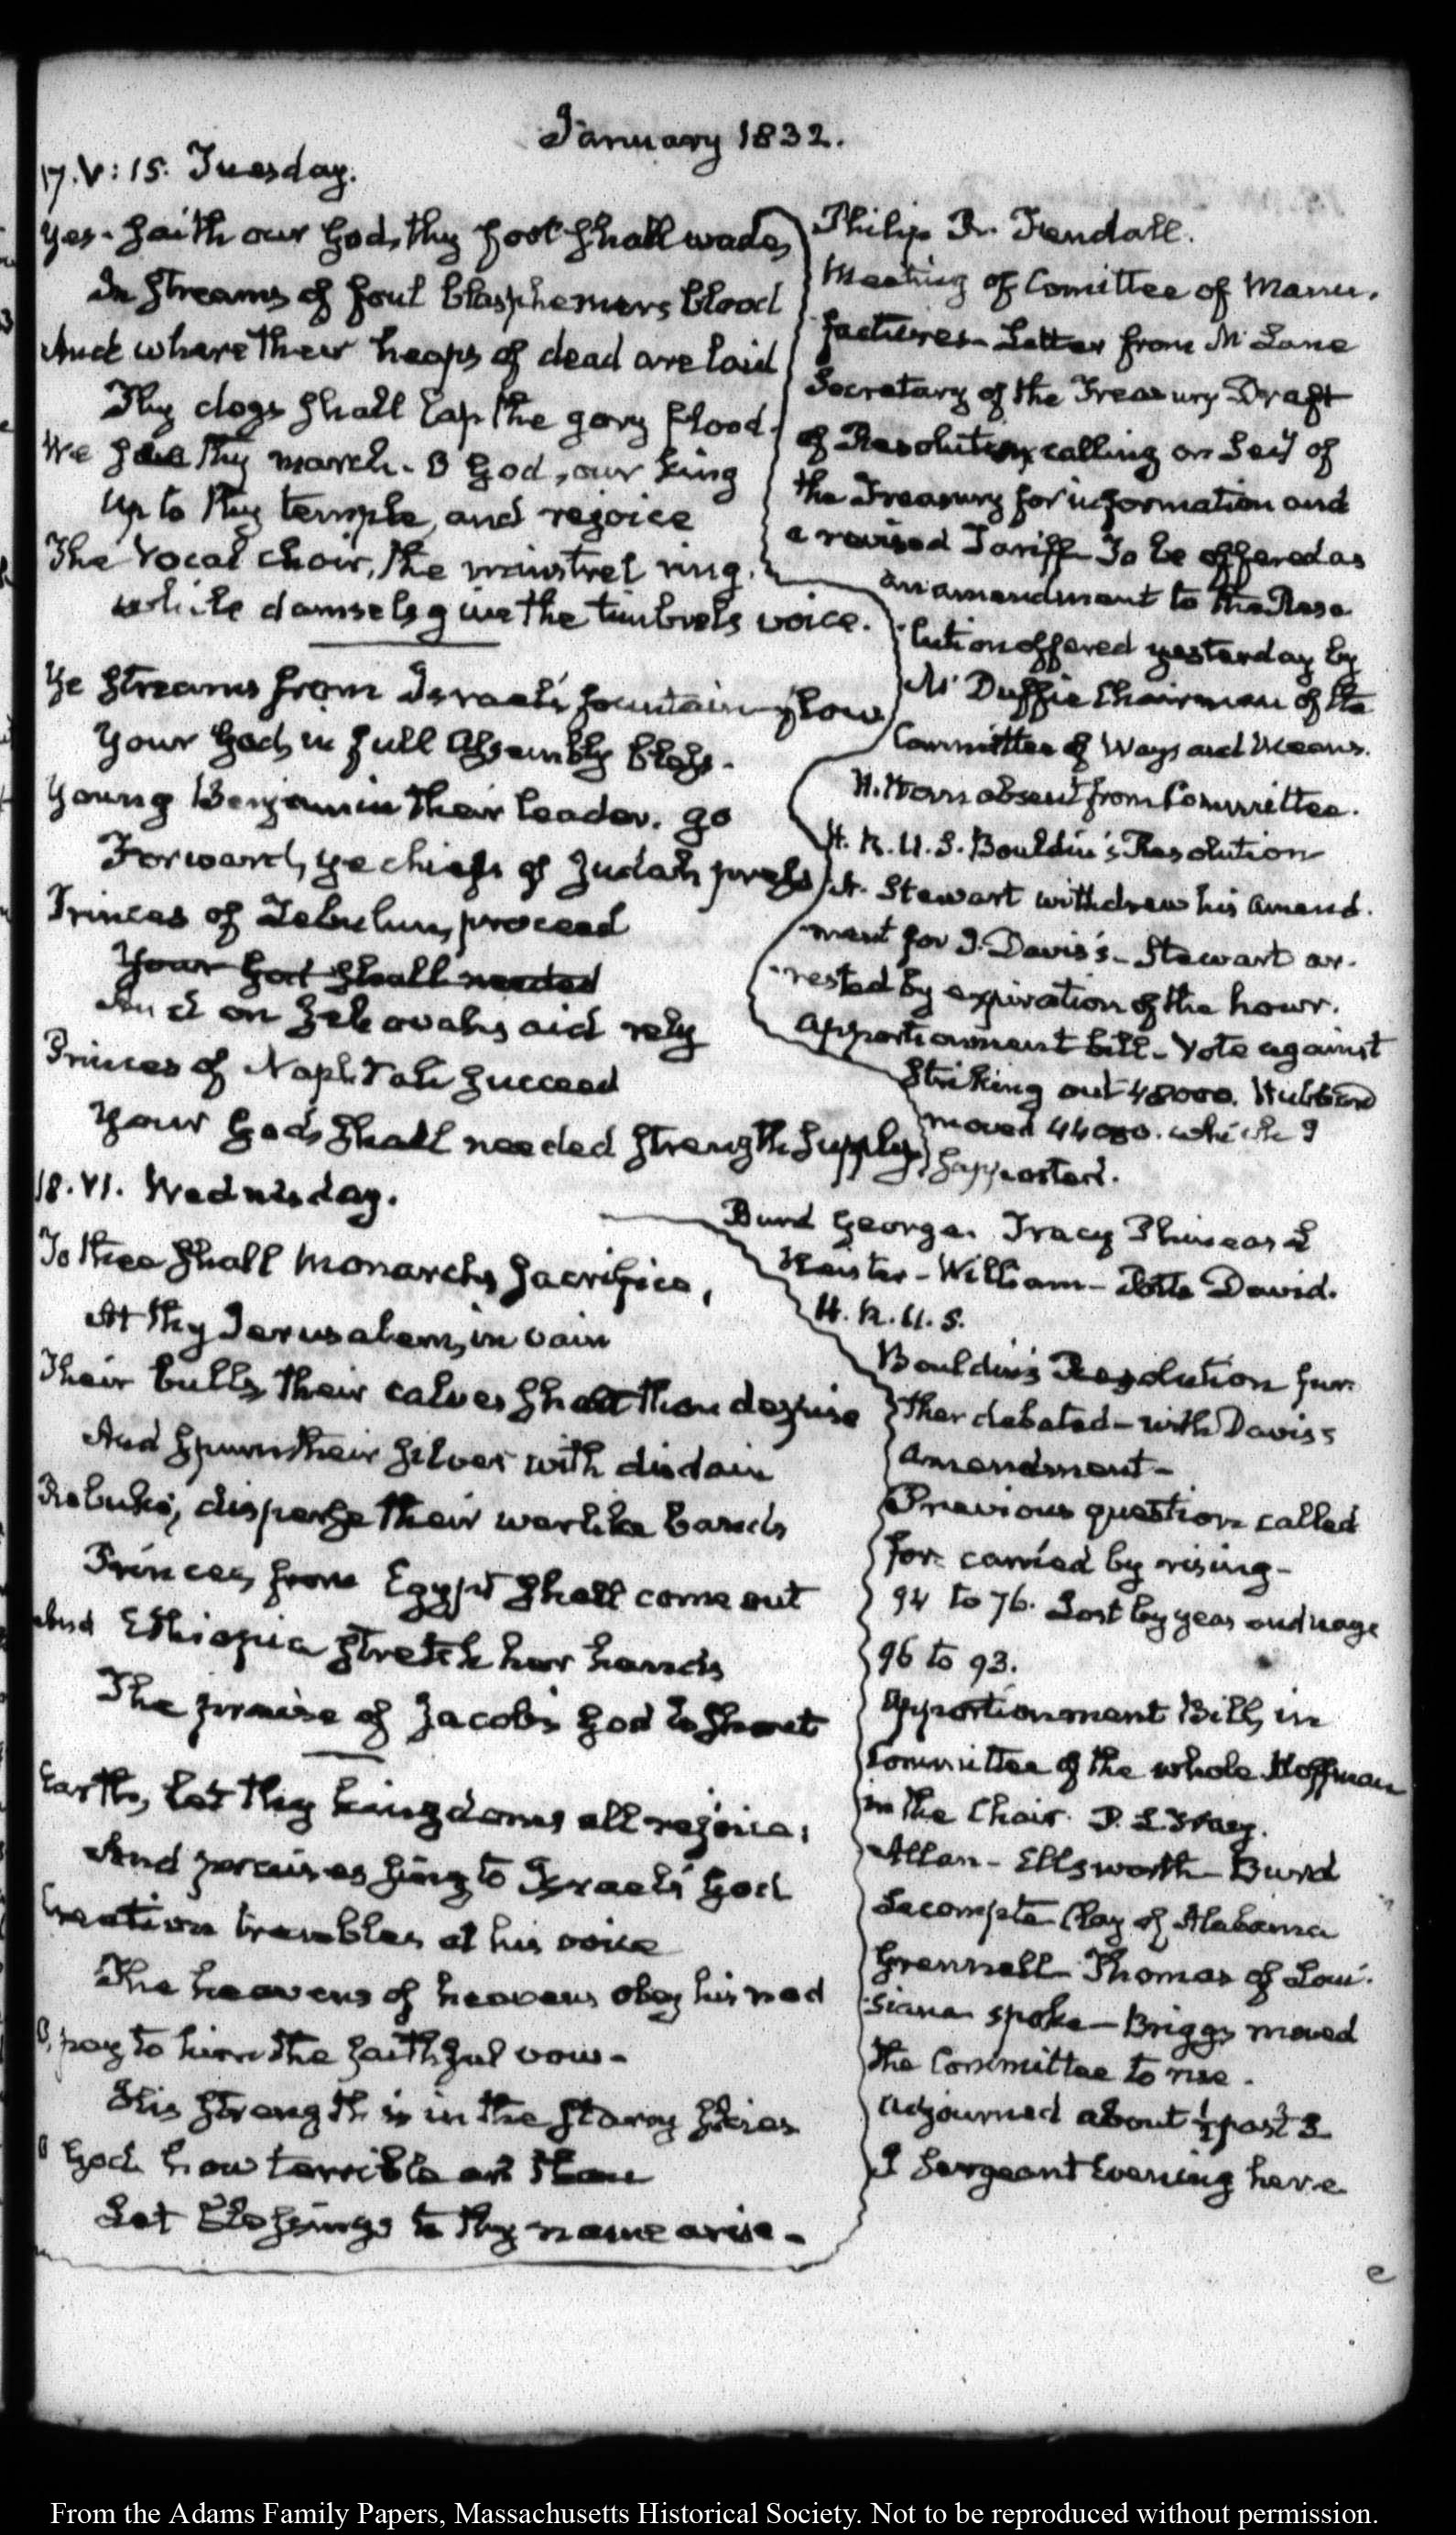 January 1832.
17. V: 15. Tuesday.
Yes. saith our God, thy foot shall wade,
In streams of foul blasphemers blood
And where their heaps of dead are laid
Thy dogs shall lap the gory flood.
We see thy march. O God, our king
Up to thy temple, and rejoice
The vocal choir, the minstrel ring.
While damsels give the timbrels voice.
Ye streams from Israel's fountain flow
Your God, in full assembly bless.
Young Benjamin their leader. go
Forward, ye chiefs of Judah press
Princes of Zebulun, proceed
Your God shall needed
And on Jehovahs aid rely
Princes of Naphtali succeed
Your God shall needed strength supply
Philip R. Fendall.
Meeting of Comittee of Manu.
factures. Letter from Mc Lane
Secretary of the Treasury Draft
of Resolution calling on Secy of
the Treasury for information and
a revised Tariff To be offered as
an amendment to the Reso
lution offered yesterday by
Mc Duffie Chairman of the
Committee of Ways and Means.
H. Horn absent from Committee.
H. R. U. S. Bouldin's Resolution
A. Stewart withdrew his amend.
ment for J. Davis's. Stewart ar.
rested by expiration of the hour.
Apportionment bill. Vote against
striking out 48000. Hubbard
moved 44000. which I
supported.
18. VI. Wednesday.
To thee shall Monarchs sacrifice,
At thy Jerusalem, in vain
Their bulls, their calves shalt thou despise
And spurn their silver with disdain
Rebuke, disperse their warlike bands
Princes, from Egypt shall come out
And Ethiopia stretch her hands
The praise of Jacob's God to shout
Earth, let thy kingdoms all rejoice,
And praises sing to Israel's God
Creation trembles at his voice
The heavens of heavens obey his nod
O, pay to him the faithful vow.
His strength is in the starry skies
O God how terrible art thou
Let blessings to thy name arise.
Burd George. Tracy Phineas L
Heister - William - Potts David.
H. R. U. S.
Bouldin's Resolution fur.
ther debated - with Davis's
amendment -
Previous question called
for. carried by rising -
94 to 76. Lost by yeas and nays
96 to 93.
Apportionment Bill, in
Committee of the whole Hoffman
in the Chair. P. L. Tracy.
Allan - Ellsworth - Burd
Lecompte Clay of Alabama
Grennell Thomas of Loui.
siana spoke - Briggs moved
the Committee to rise.
Adjourned about ½ past 3
J Sergeant Evening here
e
From the Adams Family Papers, Massachusetts Historical Society. Not to be reproduced without permission.